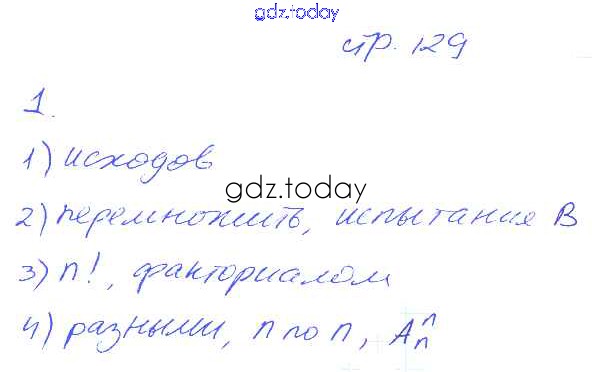 gdz.today
стр. 129
1.
1) исходов
gdz.today
2) перемножить, испытания B
3) n!, факториалом
4) разными, n по n, Aₙⁿ